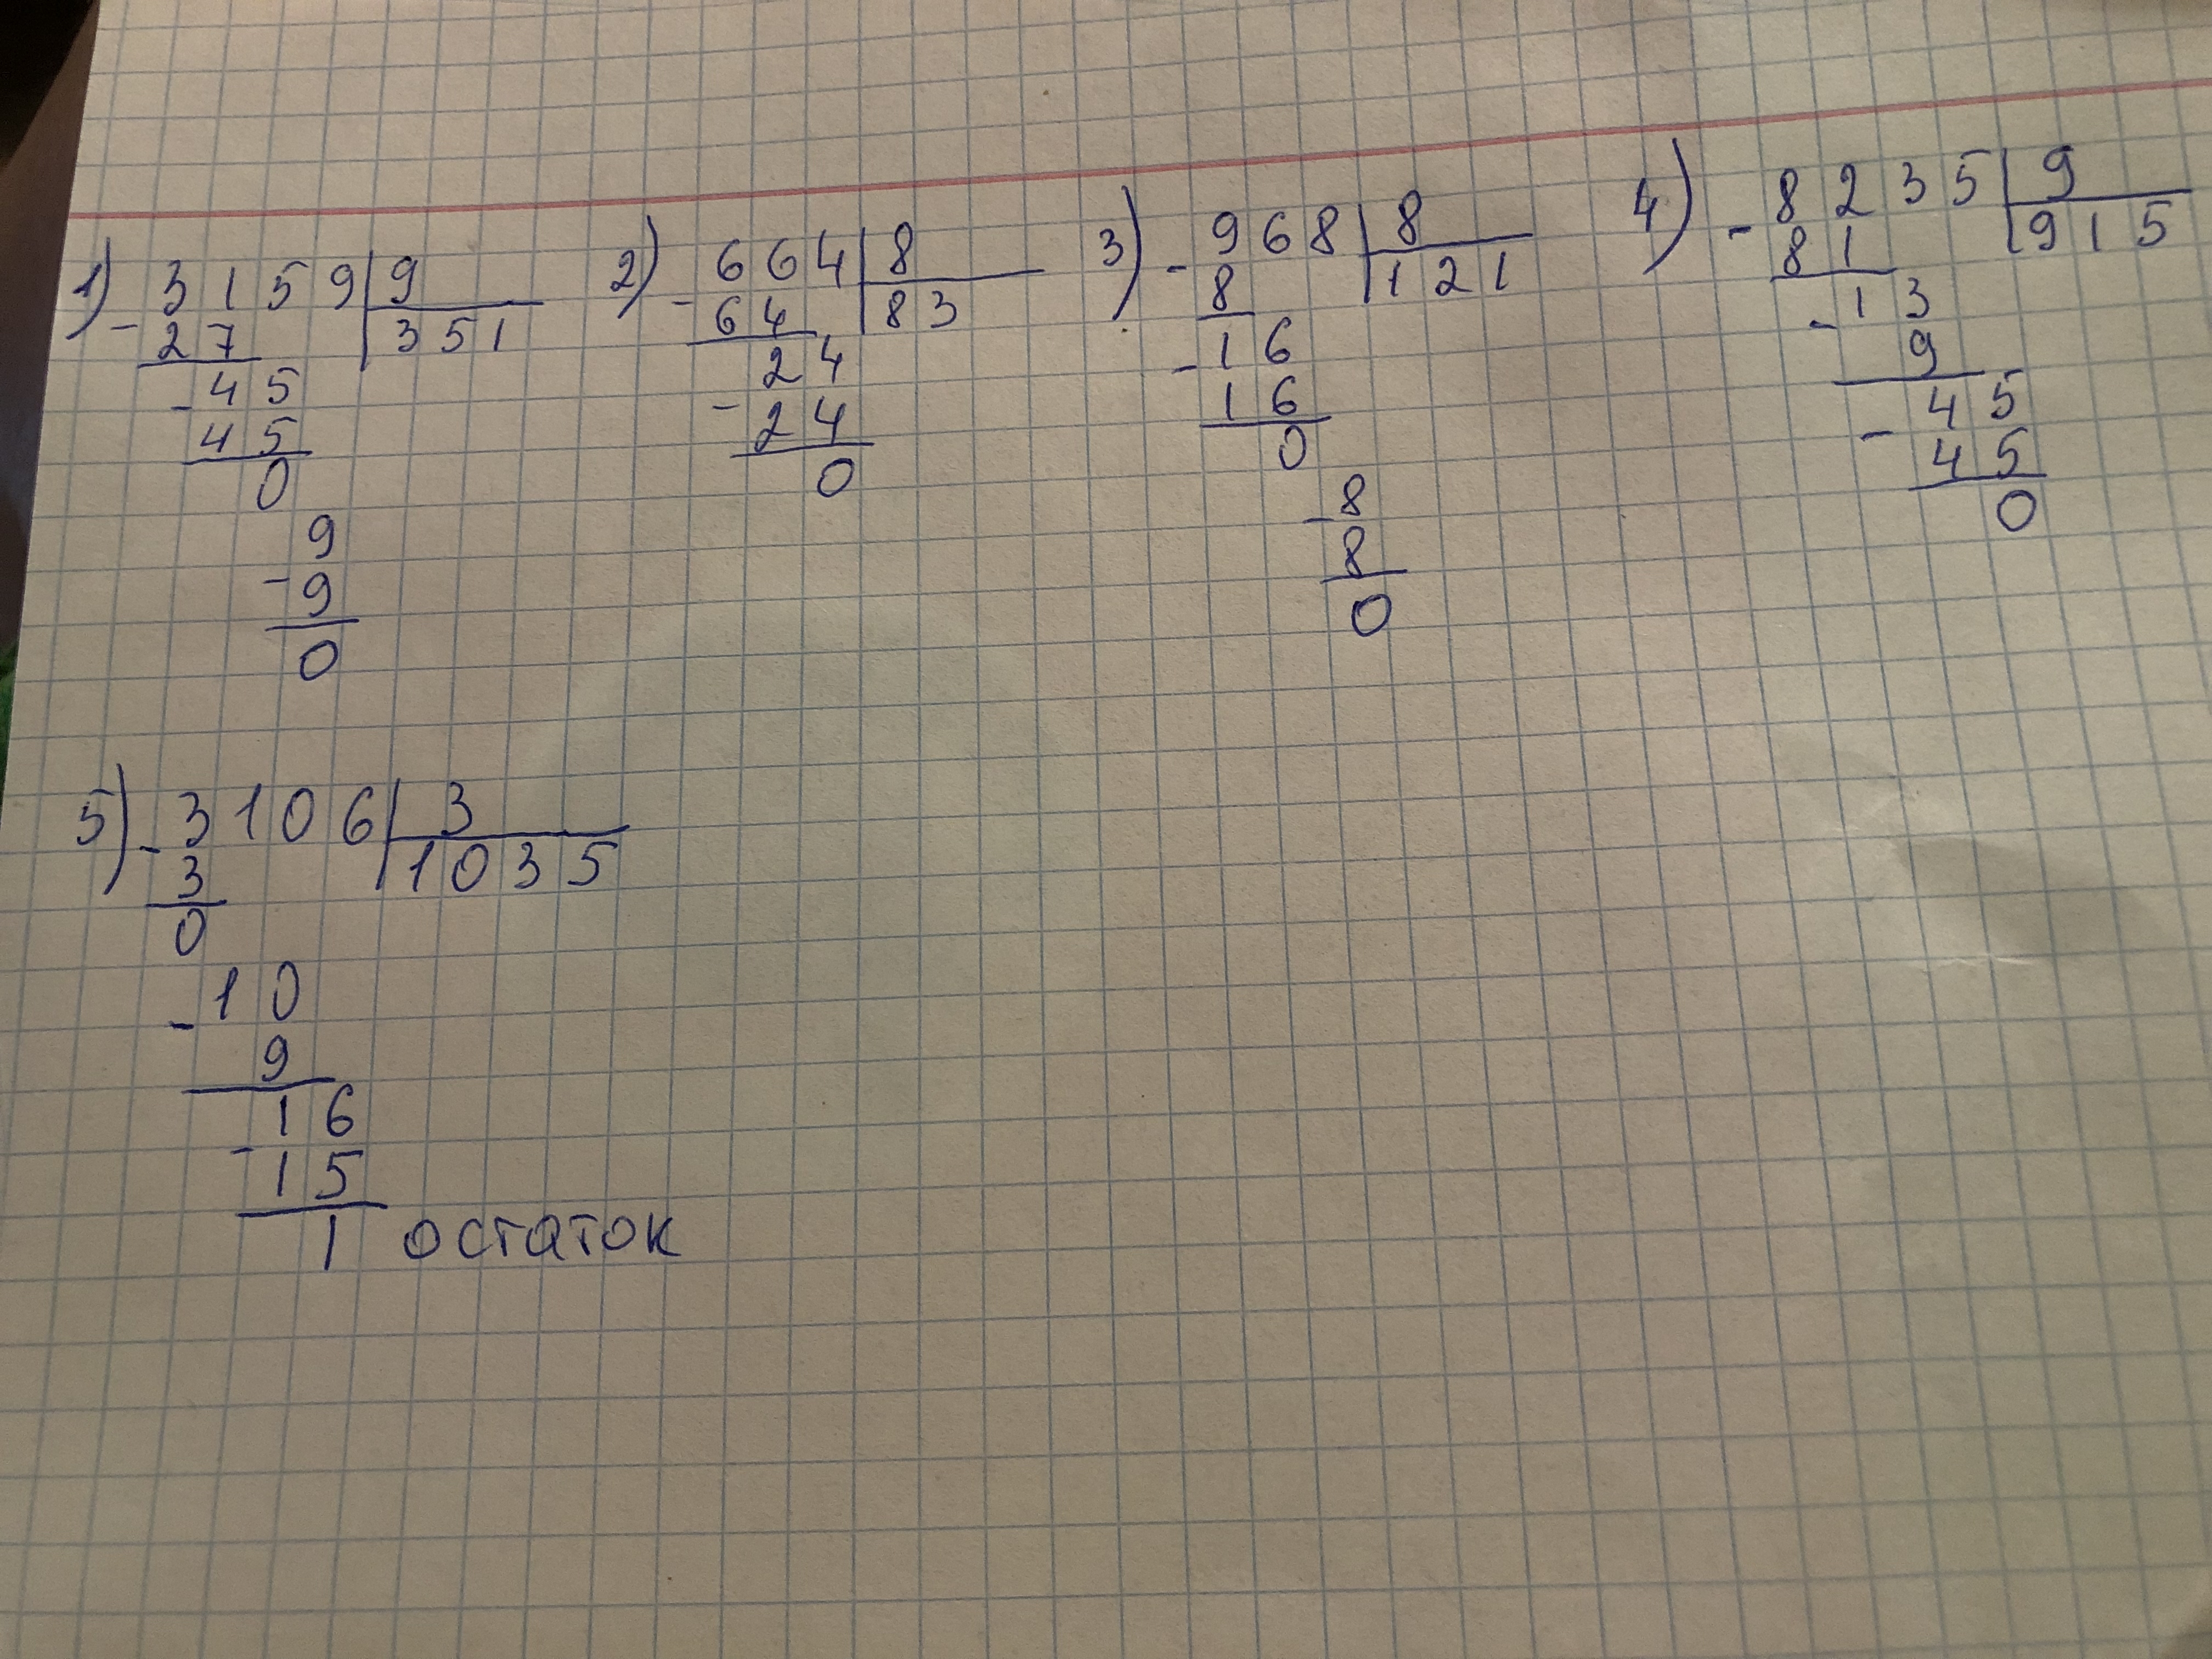 1) - 3159 | 9
27 | 351
- 45
45
0
- 9
9
0
2) - 664 | 8
64 | 83
- 24
24
0
3) - 968 | 8
8 | 121
- 16
16
0
- 8
8
0
4) - 8235 | 9
81 | 915
- 13
9
- 45
45
0
5) - 3106 | 3
3 | 1035
0
- 10
9
- 16
15
1 остаток